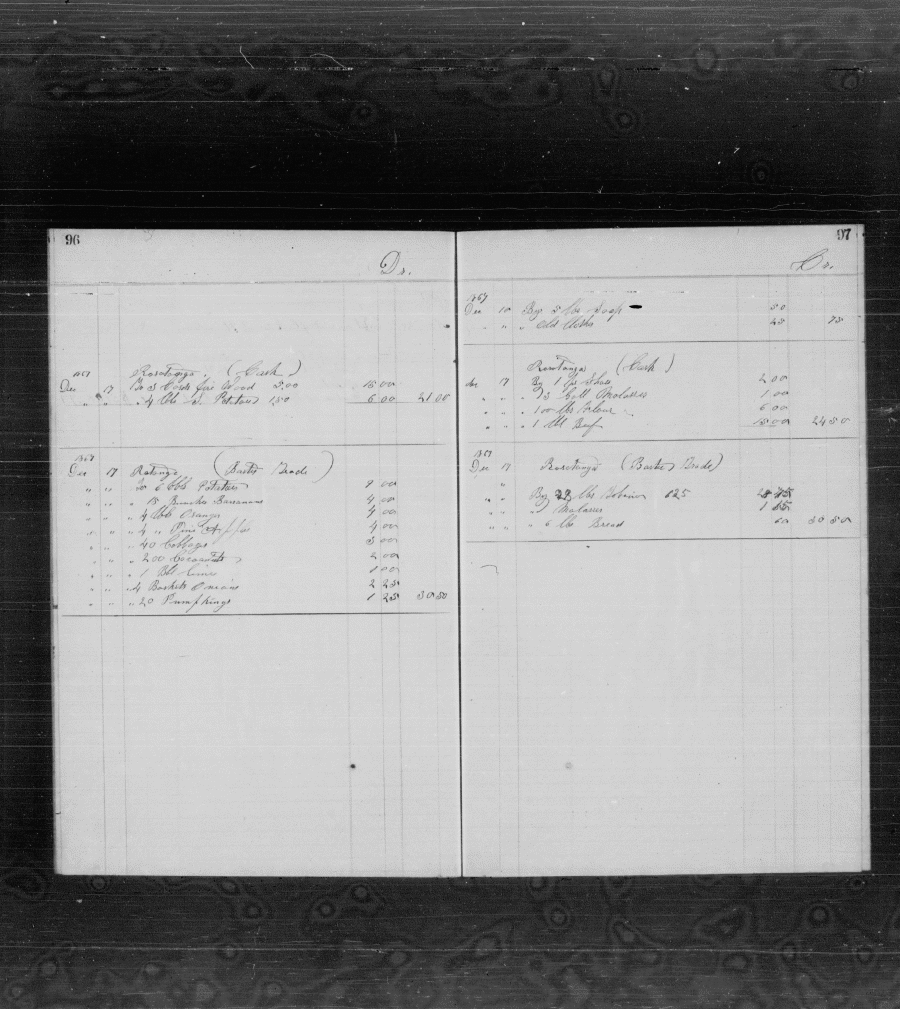 96
Dr.
1867
Rarotonga. (Cash)
Dec 17 To 3 Cords fire Wood 5.00 15 00
" " " 4 Bbls S. Potatoes 150 6 00 21 00
1867
Dec 17 Ratonga (Barter Trade)
" " To 6 bbls Potatoes 9 00
" " " 15 Bunches Bananas 4 00
" " " 4 bbls Oranges 4 00
" " " 4 " Pine Apples 4 00
" " " 40 Cabbages 3 00
" " " 200 Cocoanuts 2 00
" " " 1 Bbl Limes 1 00
" " " 4 Baskets Onions 2 25
" " " 20 Pumpkings 1 25 30 50
97
Cr.
1867
Dec 10 By 5 lbs Soap 50
" " " old 25
Rarotonga (Cash)
Dec 17 By 1 Shoes 2 00
" " " 3 Gall Molasses 1 00
" " " 100 lbs Flour 6 00
" " " 1 Bbl Beef 15 00 24 50
1867
Dec 17 Rarotonga (Barter Trade)
" "
" " By 22 lbs Tobacco 625
" " " Molasses 1
" " " 6 lbs Bread 60 30 50